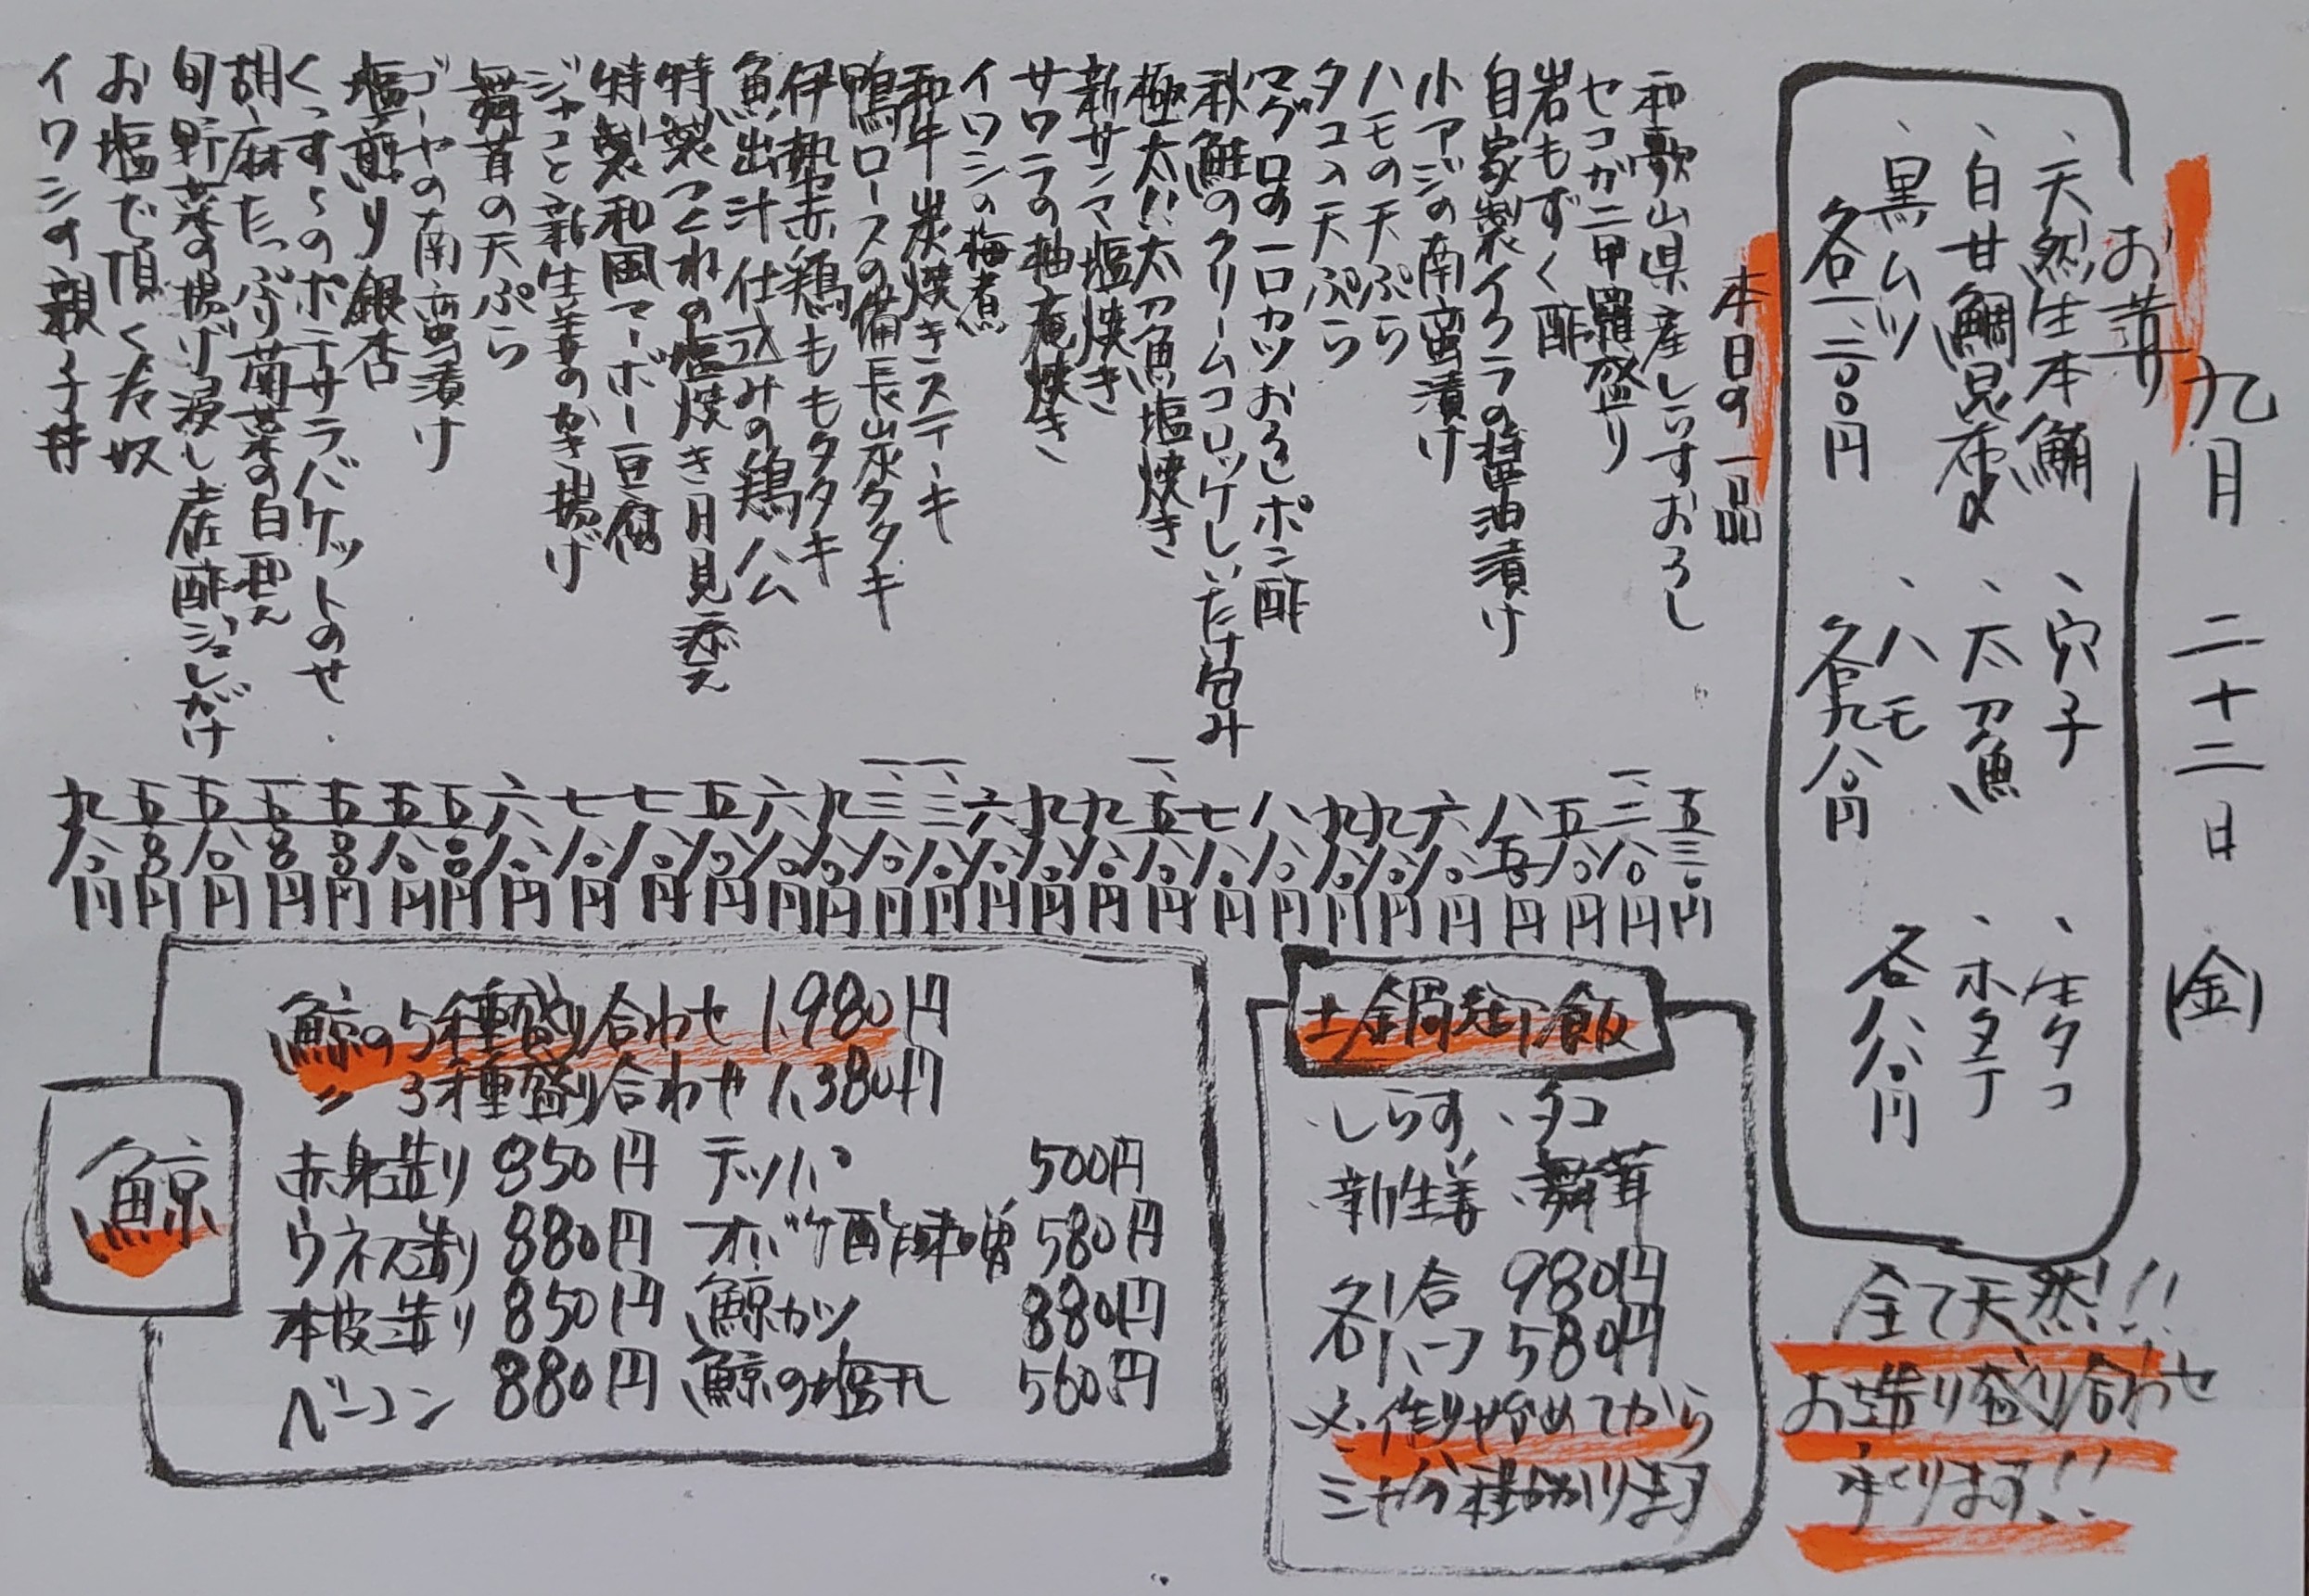 九月二十二日(金)
お造り
、天然生本鮪
、白甘鯛昆布〆
、黒ムツ
各一、二〇〇円
、穴子
、太刀魚
、ハモ
各九八〇円
、生タコ
、ホタテ
各八八〇円
全て天然!!
お造り盛り合わせ
承ります!!
本日の一品
和歌山県産しらすおろし 五三〇円
セコガニ甲羅盛り 一、二八〇円
岩もずく酢 五八〇円
自家製イクラの醤油漬け 八五〇円
小アジの南蛮漬け 六八〇円
ハモの天ぷら 九八〇円
タコの天ぷら 九八〇円
マグロの一口カツおろしポン酢 八八〇円
秋鮭のクリームコロッケしいたけ包み 七八〇円
極太!!太刀魚塩焼き 一、五八〇円
新サンマ塩焼き 九八〇円
サワラの柚庵焼き 九八〇円
イワシの梅煮 六八〇円
和牛炭焼きステーキ 一、三八〇円
鴨ロースの備長炭タタキ 一、三八〇円
伊勢赤鶏ももタタキ 九八〇円
魚出汁仕込みの鶏ハム 六八〇円
特製つくねの塩焼き月見添え 五八〇円
特製和風マーボー豆腐 七八〇円
ジャコと新生姜のかき揚げ 七八〇円
舞茸の天ぷら 六八〇円
ゴーヤの南蛮漬け 五〇〇円
塩煎り銀杏 五八〇円
くっすぅのポテサラバケットのせ 五〇〇円
胡麻たっぷり菊菜の白和え 五〇〇円
旬野菜の揚げ浸し土佐酢ジュレがけ 五八〇円
お塩で頂く冷奴 五〇〇円
イワシの親子丼 九八〇円
土鍋釜御飯
、しらす 、タコ
、新生姜 、舞茸
各1合 980円
各ハーフ 580円
※作り始めてから
三十分程掛かります
鯨
鯨の5種盛り合わせ 1,980円
〃 3種盛り合わせ 1,380円
赤身造り 950円 テッパ 500円
ウネス造り 880円 オバケ酢味噌 580円
本皮造り 850円 鯨カツ 880円
ベーコン 880円 鯨の塩干し 560円